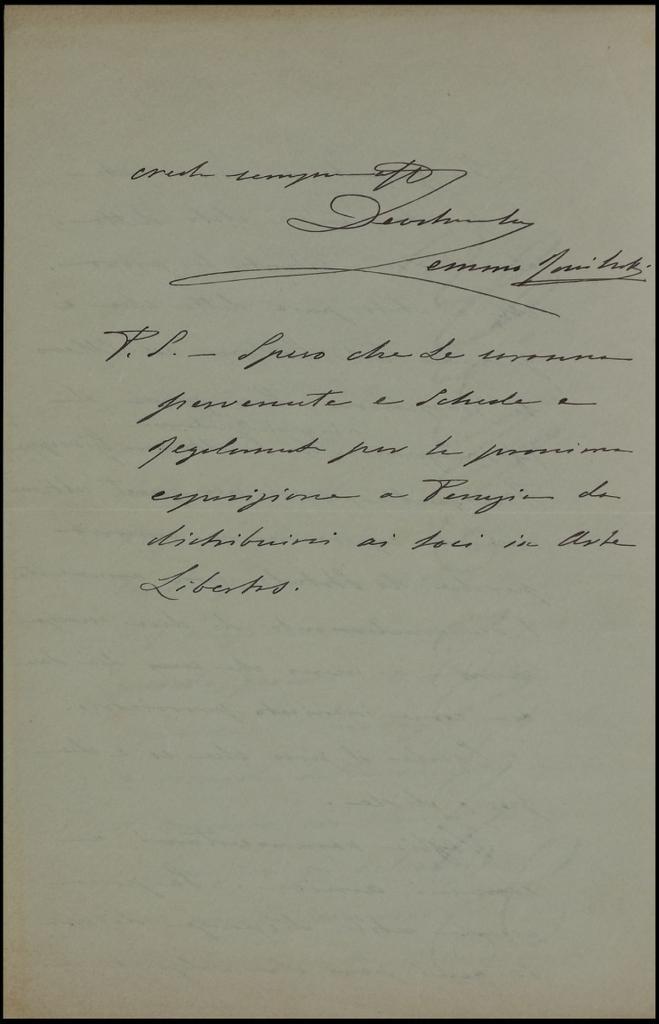 creda sempre aff
Devotmente
Lemmo Rossi
P. S. — Spero che Le saranno
pervenute e Schede e
Regolamenti per la prossima
esposizione a Perugia da
distribuirsi ai soci in Arte
Libertas.